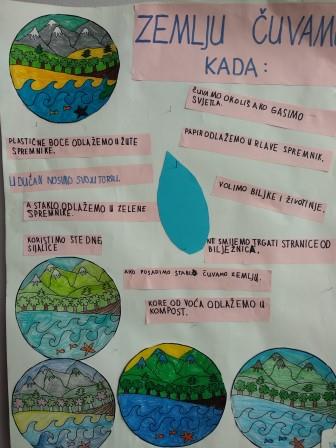 ZEMLJU ČUVAMO
KADA:
ČUVAMO OKOLIŠ AKO GASIMO
SVJETLA.
PLASTIČNE BOCE ODLAŽEMO U ŽUTE
SPREMNIKE.
PAPIR ODLAŽEMO U PLAVE SPREMNIK.
U DUĆAN NOSIMO SVOJU TORBU.
VOLIMO BILJKE I ŽIVOTINJE.
A STAKLO ODLAŽEMO U ZELENE
SPREMNIKE.
KORISTIMO ŠTEDNE
SIJALICE
NE SMIJEMO TRGATI STRANICE OD
BILJEŽNICA.
AKO POSADIMO STABLO ČUVAMO ZEMLJU.
KORE OD VOĆA ODLAŽEMO U
KOMPOST.